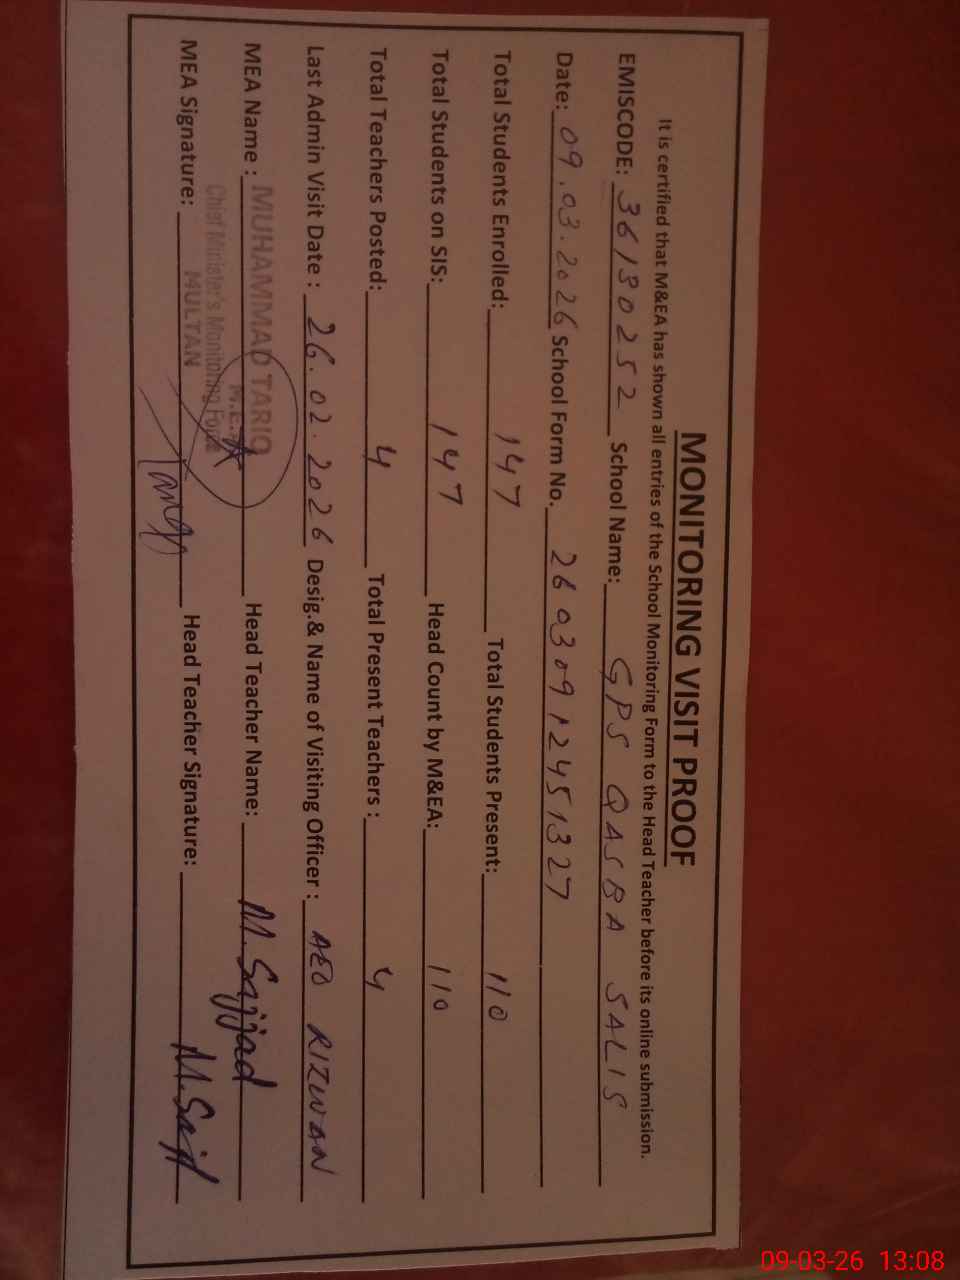 MONITORING VISIT PROOF
It is certified that M&EA has shown all entries of the School Monitoring Form to the Head Teacher before its online submission.
EMISCODE: 36130252 School Name: GPS QASBA SALIS
Date: 09.03.2026 School Form No. 26030912451327
Total Students Enrolled: 147 Total Students Present: 110
Total Students on SIS: 147 Head Count by M&EA: 110
Total Teachers Posted: 4 Total Present Teachers : 4
Last Admin Visit Date : 26.02.2026 Desig.& Name of Visiting Officer : AEO RIZWAN
MEA Name : MUHAMMAD TARIQ Head Teacher Name: M. Sajjad
M.E.A
Chief Minister's Monitoring Force
MULTAN
MEA Signature: Tariq Head Teacher Signature: M.Sajd
09-03-26 13:08